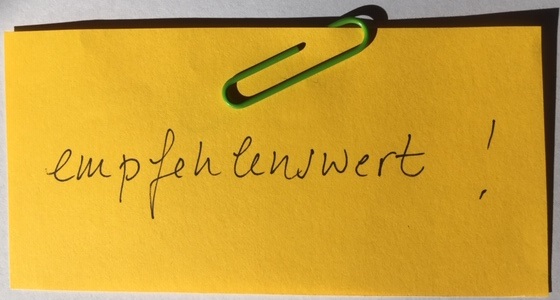 empfehlenswert !